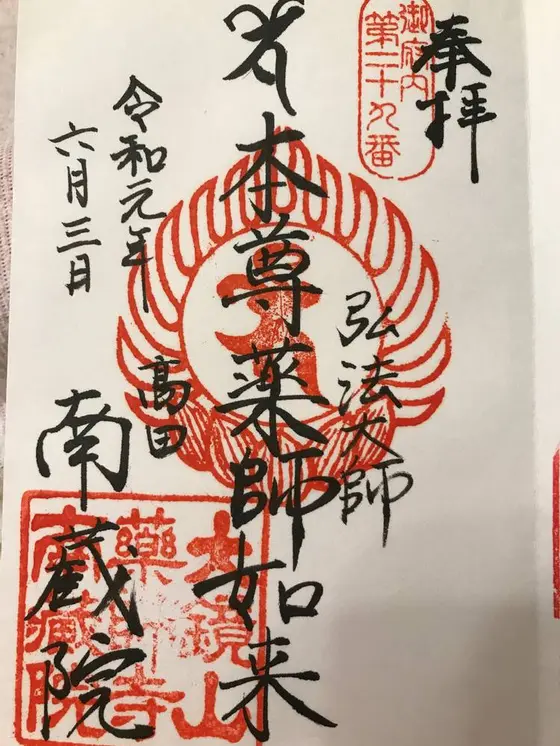 奉拝
御府内
第二十九番
弘法大師
本尊薬師如来
令和元年
六月三日
高田
南蔵院
大鏡山
薬師寺
南蔵院